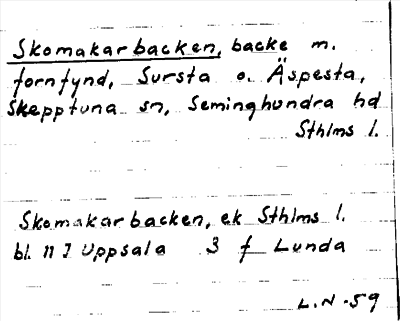 Skomakarbacken, backe m.
fornfynd, Sursta o. Äspesta,
Skepptuna sn, Seminghundra hd
Sthlms l.
Skomakarbacken, ek Sthlms l.
bl. 11 I Uppsala 3 f Lunda
L.N -59